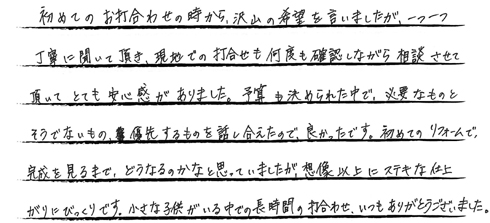 初めてのお打合わせの時から、沢山の希望を言いましたが、一つ一つ
丁寧に聞いて頂き、現地での打合せも何度も確認しながら相談させて
頂いてとても安心感がありました。予算も決められた中で、必要なものと
そうでないもの、優先するものを話し合えたので、良かったです。初めてのリフォームで、
完成を見るまで、どうなるのかなと思っていましたが、想像以上にステキな仕上
がりにびっくりです。小さな子供がいる中での長時間の打合わせ、いつもありがとうございました。